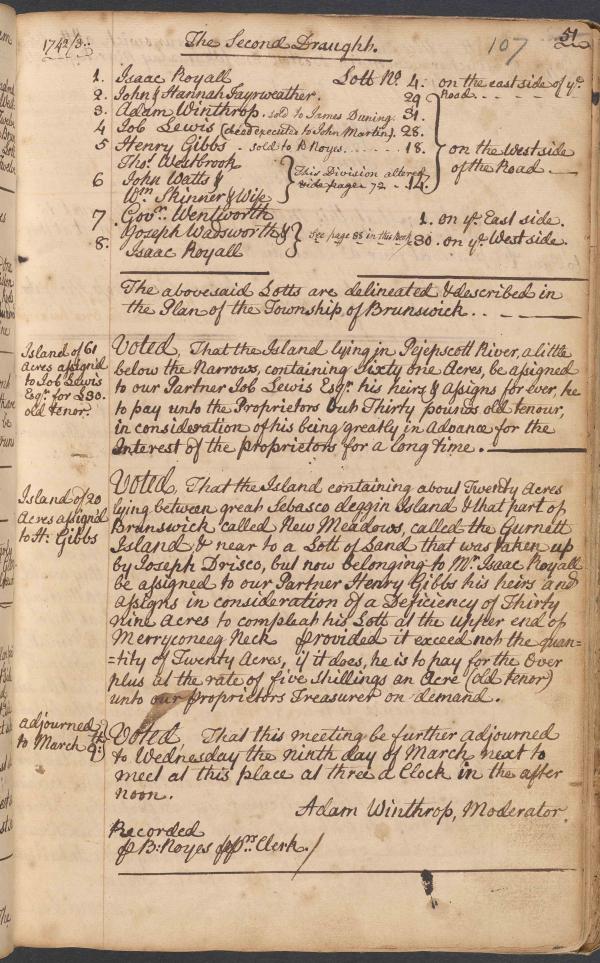 1742/3.
The Second Draught.
107
51
1. Isaac Royall Lott No. 4. on the east side of ye
Road
2. John & Hannah Fayrweather. 29
3. Adam Winthrop. sold to James Duning. 31.
4 Job Lewis (deed executed to John Martin). 28.
5 Henry Gibbs - sold to B Noyes 18.
on the West side
of the Road
Thos. Westbrook
6 John Watts &
Wm. Skinner & Wife
This Division altered
vide page 72 - 14.
7 Govr. Wentworth 1. on ye East side.
8. Joseph Wadsworth &
Isaac Royall
See page 88 in this Book 30. on ye West side.
The abovesaid Lotts are delineated & described in
the Plan of the Township of Brunswick.
Island of 61
Acres assigned
to Job Lewis
Esqr. for £30.
old tenor.
Voted, That the Island lying in Pejepscott River, a little
below the Narrows, containing sixty one Acres, be assigned
to our Partner Job Lewis Esqr. his heirs & assigns for ever, he
to pay unto the Proprietors but Thirty pounds old tenour,
in consideration of his being greatly in advance for the
Interest of the proprietors for a long time.
Island of 20
Acres assignd
to H: Gibbs
Voted, That the Island containing about Twenty Acres
lying between great Sebasco deggin Island & that part of
Brunswick called New Meadows, called the Gurnett
Island, & near to a Lott of Land that was taken up
by Joseph Drisco, but now belonging to Mr. Isaac Royall
be assigned to our Partner Henry Gibbs his heirs and
assigns in consideration of a Deficiency of Thirty
nine Acres to compleat his Lott at the upper end of
Merryconeeg Neck provided it exceed not the quan=
=tity of Twenty Acres, if it does, he is to pay for the Over
plus at the rate of five shillings an Acre (old tenor)
unto our proprietors Treasurer on demand.
adjourned
to March 9th:
Voted That this meeting be further adjourned
to Wednesday the ninth day of March next to
meet at this place at three a Clock in the after
noon.
Adam Winthrop, Moderator.
Recorded
p B: Noyes pprs Clerk.